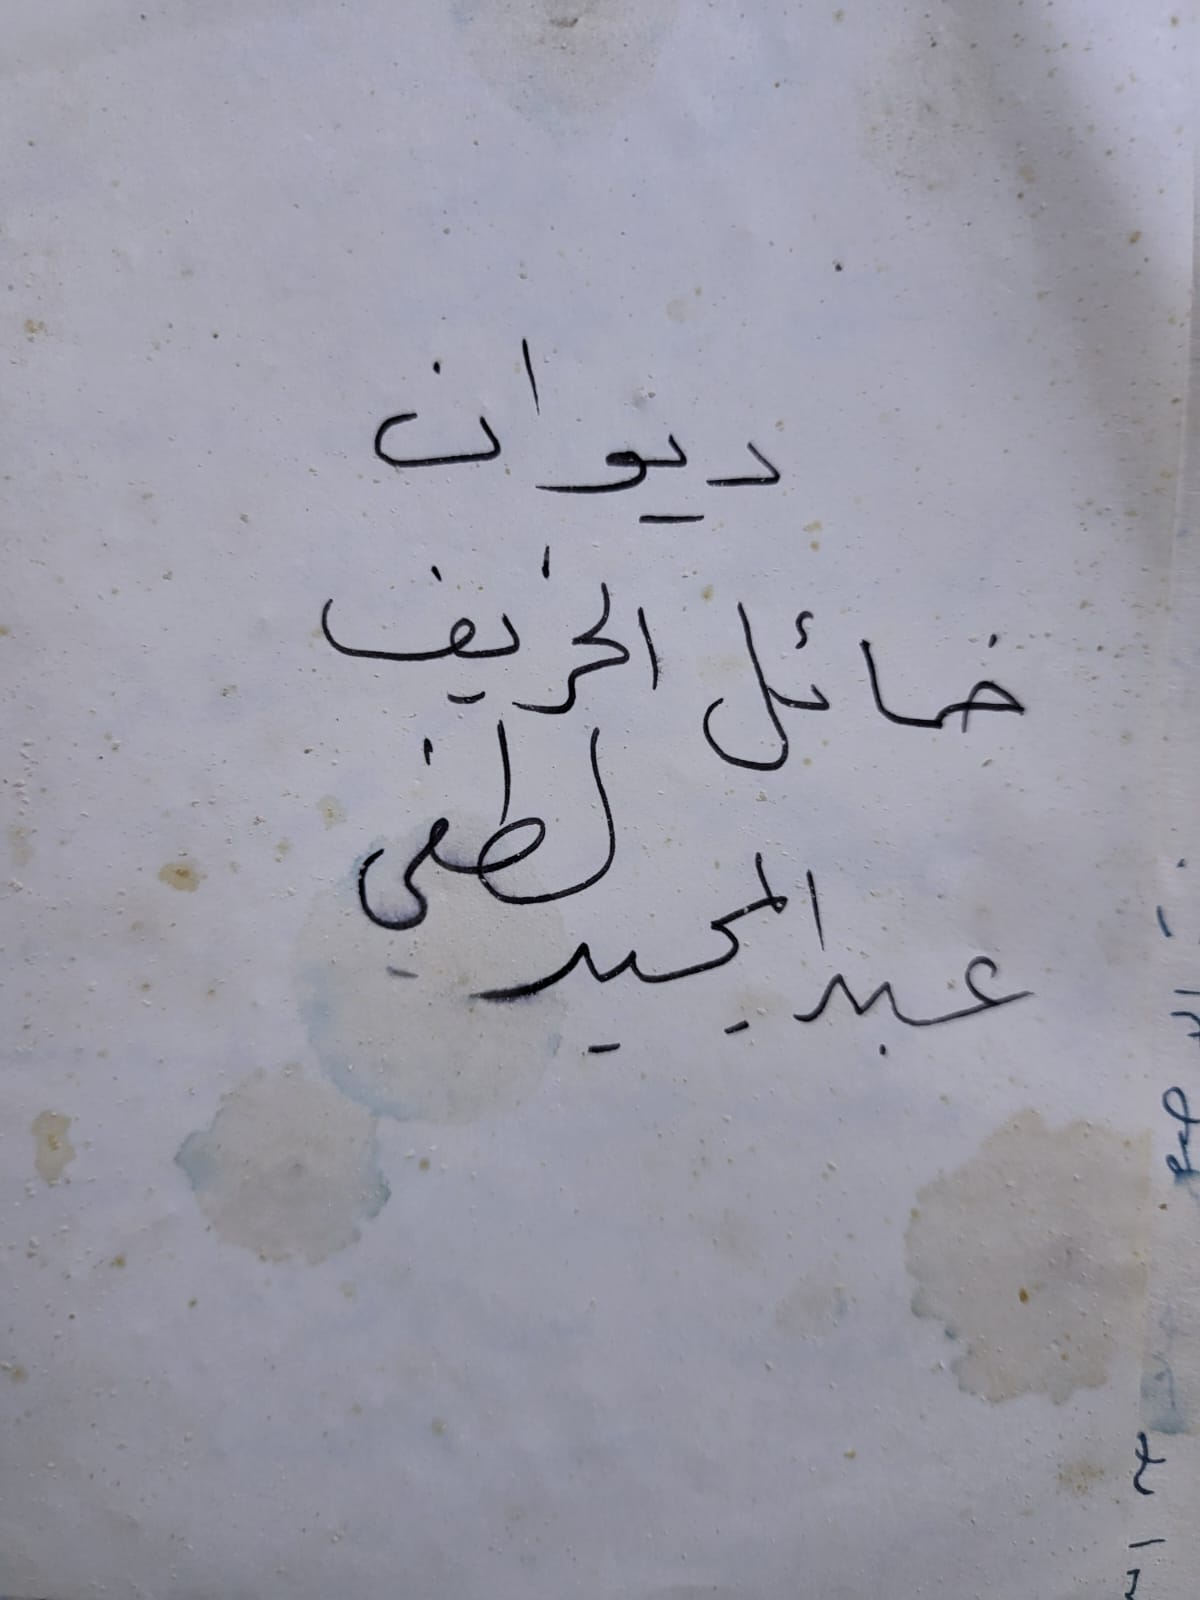 ديوان
خمائل الخريف
عبد المجيد لطفي